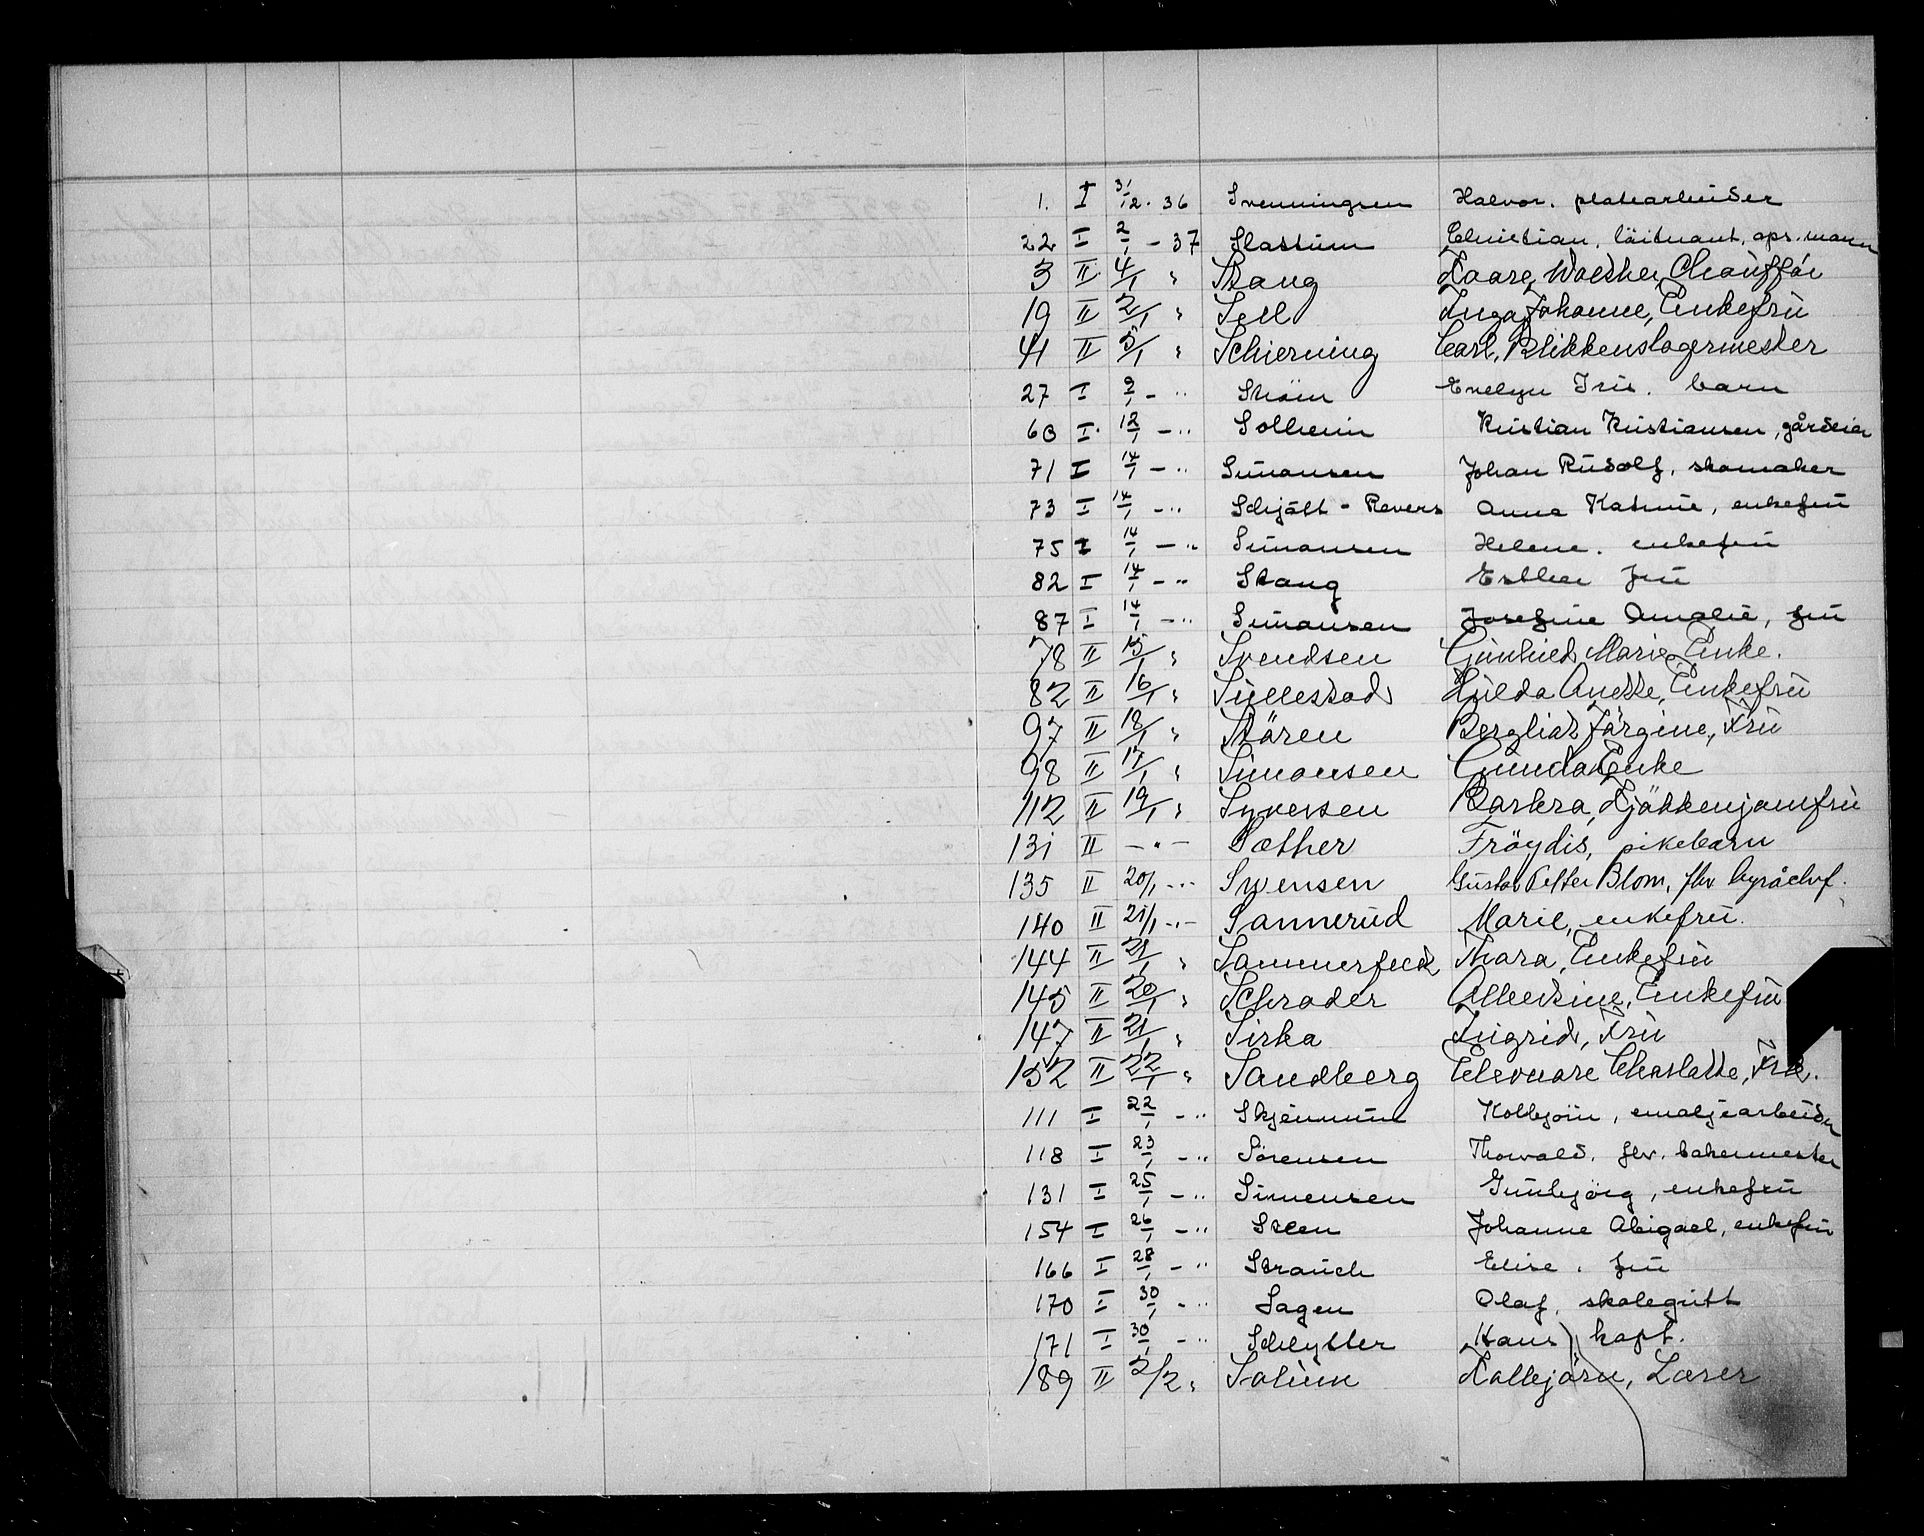 1. I 31/12. 36 Svenningsen Halvor. platearbeider
22 I 2/1 - 37 Slastum Christian, løitnant, ops.mann
3 II 4/1 " Stang Kaare Walther, Chauffør
19 II 2/1 " Sell Inga Johanne, Enkefru
41 II 5/1 " Schierning Carl, Blikkenslagermester
27 I 9/1 - " Strøm Evelyn Iris. barn
60 I 12/1 - " Solheim Kristian Kristiansen, gårdeier
71 I 14/1 - " Simonsen Johan Rudolf, skomaker
73 I 14/1 - " Schjøtt - Revers Anna Katrine, enkefru
75 I 14/1 - " Simonsen Helene. enkefru
82 I 14/1 - " Stang Esther fru
87 I 14/1 - " Simonsen Josefine Amalie, fru
78 II 15/1 " Svendsen Gunhild Marie, Enke.
82 II 16/1 " Sullestad Hulda Anette, Enkefru
97 II 18/1 " Støren Bergliot Jørgine, Fru
98 II 17/1 " Simonsen Gunda Enke
112 II 19/1 " Syversen Barbra, Kjøkkenjomfru
131 II - " - Sæther Frøydis, pikebarn
135 II 20/1 - " - Svensen Gustav Petter Blom, fhv byråchef.
140 II 21/1 - " - Sannerud Marie, enkefru.
144 II 21/1 " Sommerfeldt Thora, Enkefru
145 II 20/1 " Schrøder Albertine, Enkefru
147 II 21/1 " Sirka Ingrid, Fru
152 II 22/1 " Sandberg Eleonore Charlotte, Frk.
111 I 22/1 - " Skjennum Kolbjørn, emaljearbeider
118 I 23/1 - " Sørensen Thorvald. fhv. bakermester
131 I 25/1 - " Simensen Gunbjørg, enkefru
154 I 26/1 - " Steen Johanne Abigael, enkefru
166 I 28/1 - " Strauch Elise. fru
170 I 30/1 - " Sagen Olaf, skolegutt
171 I 30/1 - " Schlytter Hans kapt.
189 II 2/2 " Solum Kolbjørn, Lærer